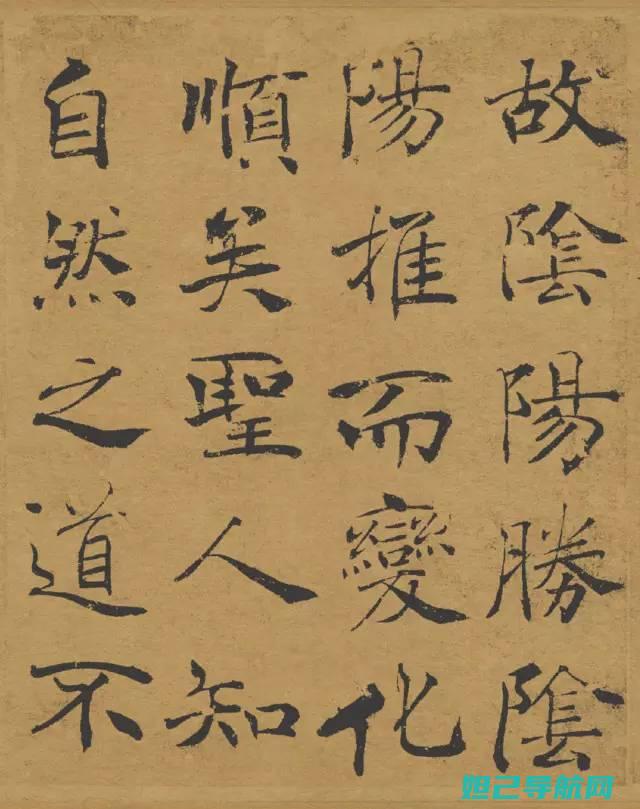 故陰陽勝陰
陽推而變化
順矣聖人知
自然之道不
妲己导航网